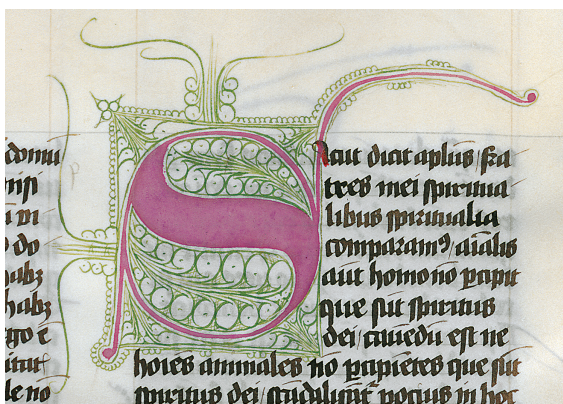 domū
nisi
do
habz
habz
ego ē
le no
Sicut dicit aplūs fra
tres mei spiritua
libus spiritualia
comparamꝰ aīalis
aūt homo nō ꝑcipit
que sūt spiritus
dei cauedū est ne
hoīes animales nō ꝑcipiētes que sūt
spiritus dei pocius in hoc